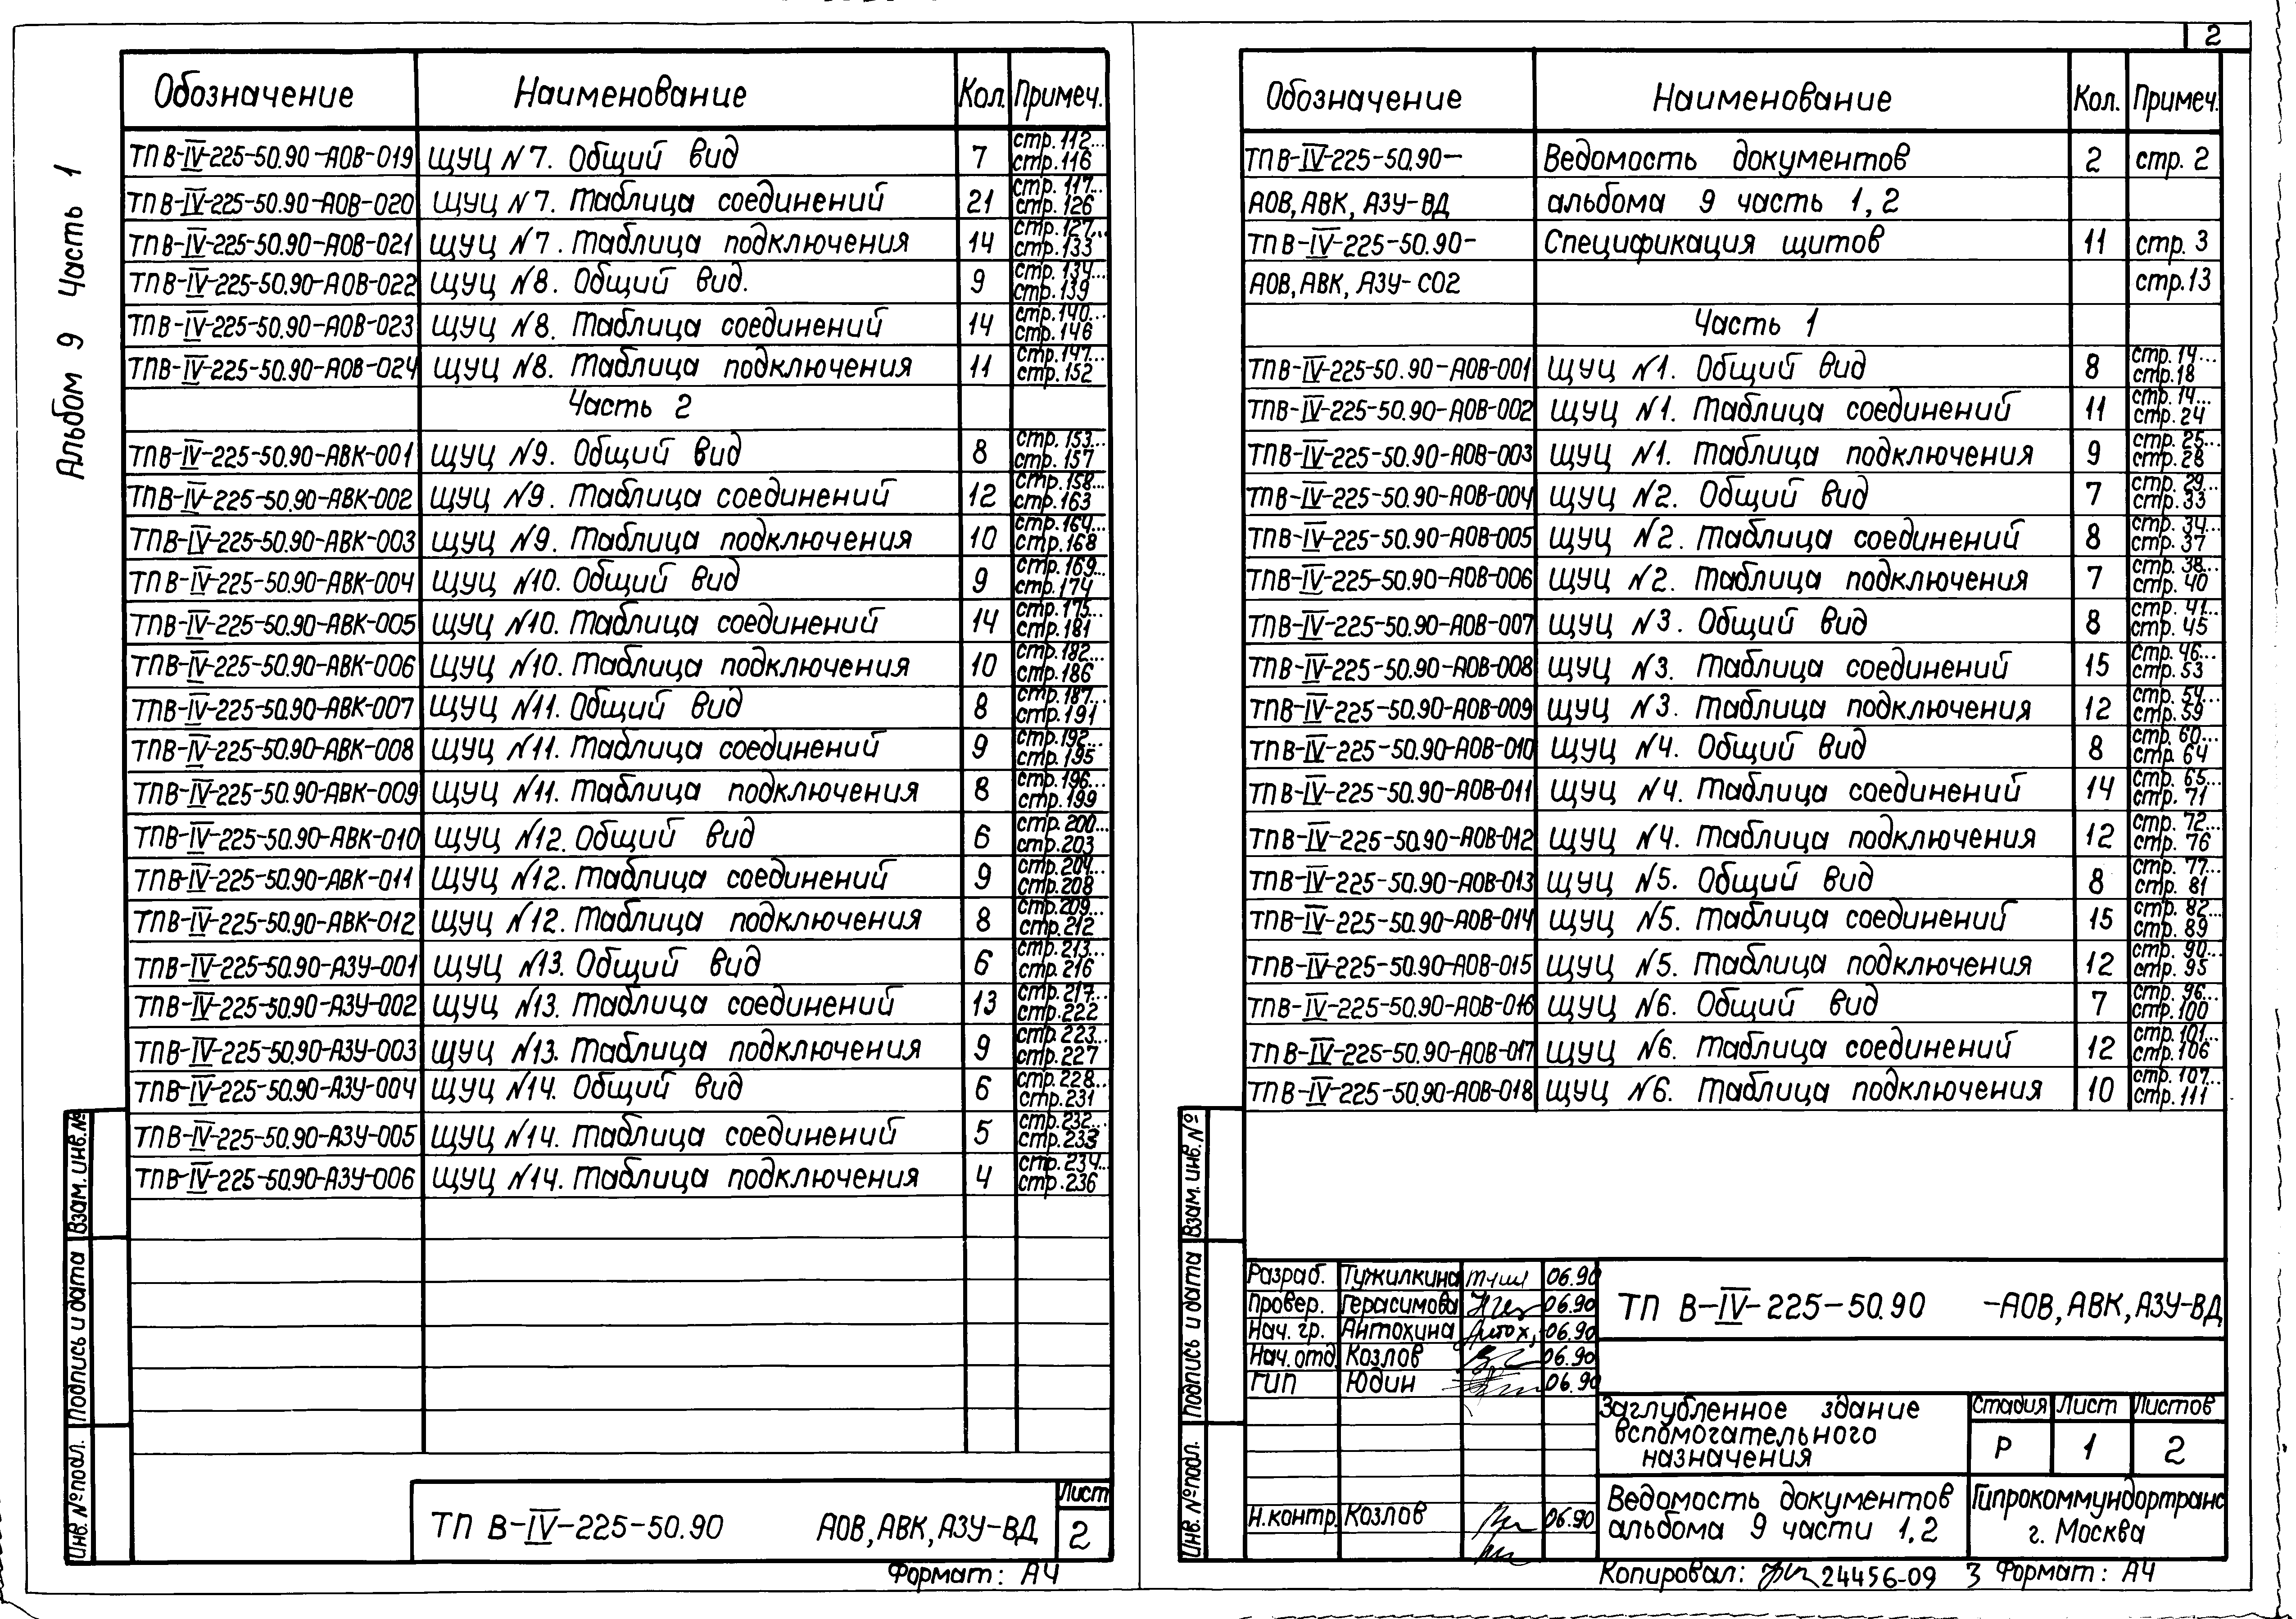 2
Альбом 9 Часть 1
Обозначение Наименование Кол. Примеч.
ТП В-IV-225-50.90-АОВ-019 ЩУЦ N7. Общий вид 7 стр.112... стр.116
ТП В-IV-225-50.90-АОВ-020 ЩУЦ N7. Таблица соединений 21 стр.117... стр.126
ТП В-IV-225-50.90-АОВ-021 ЩУЦ N7. Таблица подключения 14 стр.127... стр.133
ТП В-IV-225-50.90-АОВ-022 ЩУЦ N8. Общий вид. 9 стр.134... стр.139
ТП В-IV-225-50.90-АОВ-023 ЩУЦ N8. Таблица соединений 14 стр.140... стр.146
ТП В-IV-225-50.90-АОВ-024 ЩУЦ N8. Таблица подключения 11 стр.147... стр.152
Часть 2
ТП В-IV-225-50.90-АВК-001 ЩУЦ N9. Общий вид 8 стр.153... стр.157
ТП В-IV-225-50.90-АВК-002 ЩУЦ N9. Таблица соединений 12 стр.158... стр.163
ТП В-IV-225-50.90-АВК-003 ЩУЦ N9. Таблица подключения 10 стр.164... стр.168
ТП В-IV-225-50.90-АВК-004 ЩУЦ N10. Общий вид 9 стр.169... стр.174
ТП В-IV-225-50.90-АВК-005 ЩУЦ N10. Таблица соединений 14 стр.175... стр.181
ТП В-IV-225-50.90-АВК-006 ЩУЦ N10. Таблица подключения 10 стр.182... стр.186
ТП В-IV-225-50.90-АВК-007 ЩУЦ N11. Общий вид 8 стр.187... стр.191
ТП В-IV-225-50.90-АВК-008 ЩУЦ N11. Таблица соединений 9 стр.192... стр.195
ТП В-IV-225-50.90-АВК-009 ЩУЦ N11. Таблица подключения 8 стр.196... стр.199
ТП В-IV-225-50.90-АВК-010 ЩУЦ N12. Общий вид 6 стр.200... стр.203
ТП В-IV-225-50.90-АВК-011 ЩУЦ N12. Таблица соединений 9 стр.204... стр.208
ТП В-IV-225-50.90-АВК-012 ЩУЦ N12. Таблица подключения 8 стр.209... стр.212
ТП В-IV-225-50.90-АЗУ-001 ЩУЦ N13. Общий вид 6 стр.213... стр.216
ТП В-IV-225-50.90-АЗУ-002 ЩУЦ N13. Таблица соединений 13 стр.217... стр.222
ТП В-IV-225-50.90-АЗУ-003 ЩУЦ N13. Таблица подключения 9 стр.223... стр.227
ТП В-IV-225-50.90-АЗУ-004 ЩУЦ N14. Общий вид 6 стр.228... стр.231
ТП В-IV-225-50.90-АЗУ-005 ЩУЦ N14. Таблица соединений 5 стр.232... стр.233
ТП В-IV-225-50.90-АЗУ-006 ЩУЦ N14. Таблица подключения 4 стр.234... стр.236
Инв. № подл. Подпись и дата Взам. инв. №
ТП В-IV-225-50.90 АОВ, АВК, АЗУ-ВД Лист 2
Формат: А4
Обозначение Наименование Кол. Примеч.
ТП В-IV-225-50.90- Ведомость документов 2 стр. 2
АОВ, АВК, АЗУ-ВД альбома 9 часть 1, 2
ТП В-IV-225-50.90- Спецификация щитов 11 стр. 3
АОВ, АВК, АЗУ-СО2 стр.13
Часть 1
ТП В-IV-225-50.90-АОВ-001 ЩУЦ N1. Общий вид 8 стр.14... стр.18
ТП В-IV-225-50.90-АОВ-002 ЩУЦ N1. Таблица соединений 11 стр.14... стр.24
ТП В-IV-225-50.90-АОВ-003 ЩУЦ N1. Таблица подключения 9 стр.25... стр.28
ТП В-IV-225-50.90-АОВ-004 ЩУЦ N2. Общий вид 7 стр.29... стр.33
ТП В-IV-225-50.90-АОВ-005 ЩУЦ N2. Таблица соединений 8 стр.34... стр.37
ТП В-IV-225-50.90-АОВ-006 ЩУЦ N2. Таблица подключения 7 стр.38... стр.40
ТП В-IV-225-50.90-АОВ-007 ЩУЦ N3. Общий вид 8 стр.41... стр.45
ТП В-IV-225-50.90-АОВ-008 ЩУЦ N3. Таблица соединений 15 стр.46... стр.53
ТП В-IV-225-50.90-АОВ-009 ЩУЦ N3. Таблица подключения 12 стр.54... стр.59
ТП В-IV-225-50.90-АОВ-010 ЩУЦ N4. Общий вид 8 стр.60... стр 64
ТП В-IV-225-50.90-АОВ-011 ЩУЦ N4. Таблица соединений 14 стр.65... стр.71
ТП В-IV-225-50.90-АОВ-012 ЩУЦ N4. Таблица подключения 12 стр.72... стр.76
ТП В-IV-225-50.90-АОВ-013 ЩУЦ N5. Общий вид 8 стр.77... стр.81
ТП В-IV-225-50.90-АОВ-014 ЩУЦ N5. Таблица соединений 15 стр.82... стр.89
ТП В-IV-225-50.90-АОВ-015 ЩУЦ N5. Таблица подключения 12 стр.90... стр.95
ТП В-IV-225-50.90-АОВ-016 ЩУЦ N6. Общий вид 7 стр.96... стр.100
ТП В-IV-225-50.90-АОВ-017 ЩУЦ N6. Таблица соединений 12 стр.101... стр.106
ТП В-IV-225-50.90-АОВ-018 ЩУЦ N6. Таблица подключения 10 стр.107... стр.111
Инв. № подл. Подпись и дата Взам. инв. №
Разраб. Тужилкина 06.90
Провер. Герасимова 06.90
Нач. гр. Антохина 06.90
Нач. отд. Козлов 06.90
ГИП Юдин 06.90
Н.контр. Козлов 06.90
ТП В-IV-225-50.90 -АОВ, АВК, АЗУ-ВД
Заглубленное здание вспомогательного назначения
Стадия Лист Листов
Р 1 2
Ведомость документов альбома 9 части 1,2
Гипрокоммундортранс г. Москва
Копировал: 24456-09 3 Формат: А4